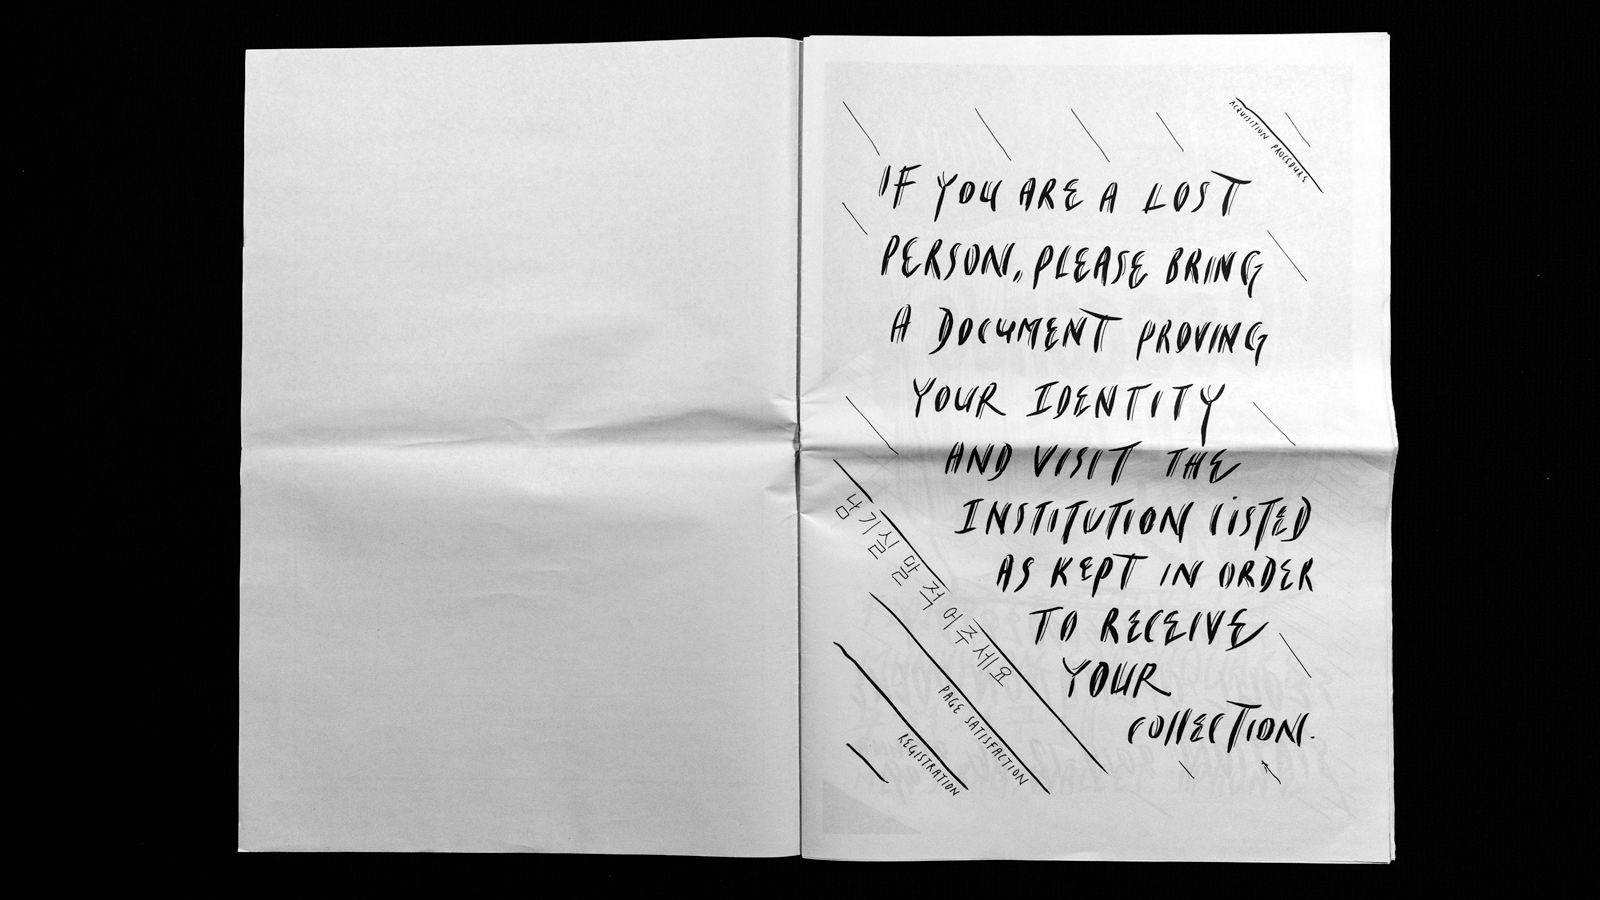 ACQUISITION PROCEDURE
IF YOU ARE A LOST
PERSON, PLEASE BRING
A DOCUMENT PROVING
YOUR IDENTITY
AND VISIT THE
INSTITUTION LISTED
AS KEPT IN ORDER
TO RECEIVE
YOUR
COLLECTION.
남기실 말 적어주세요
PAGE SATISFACTION
REGISTRATION